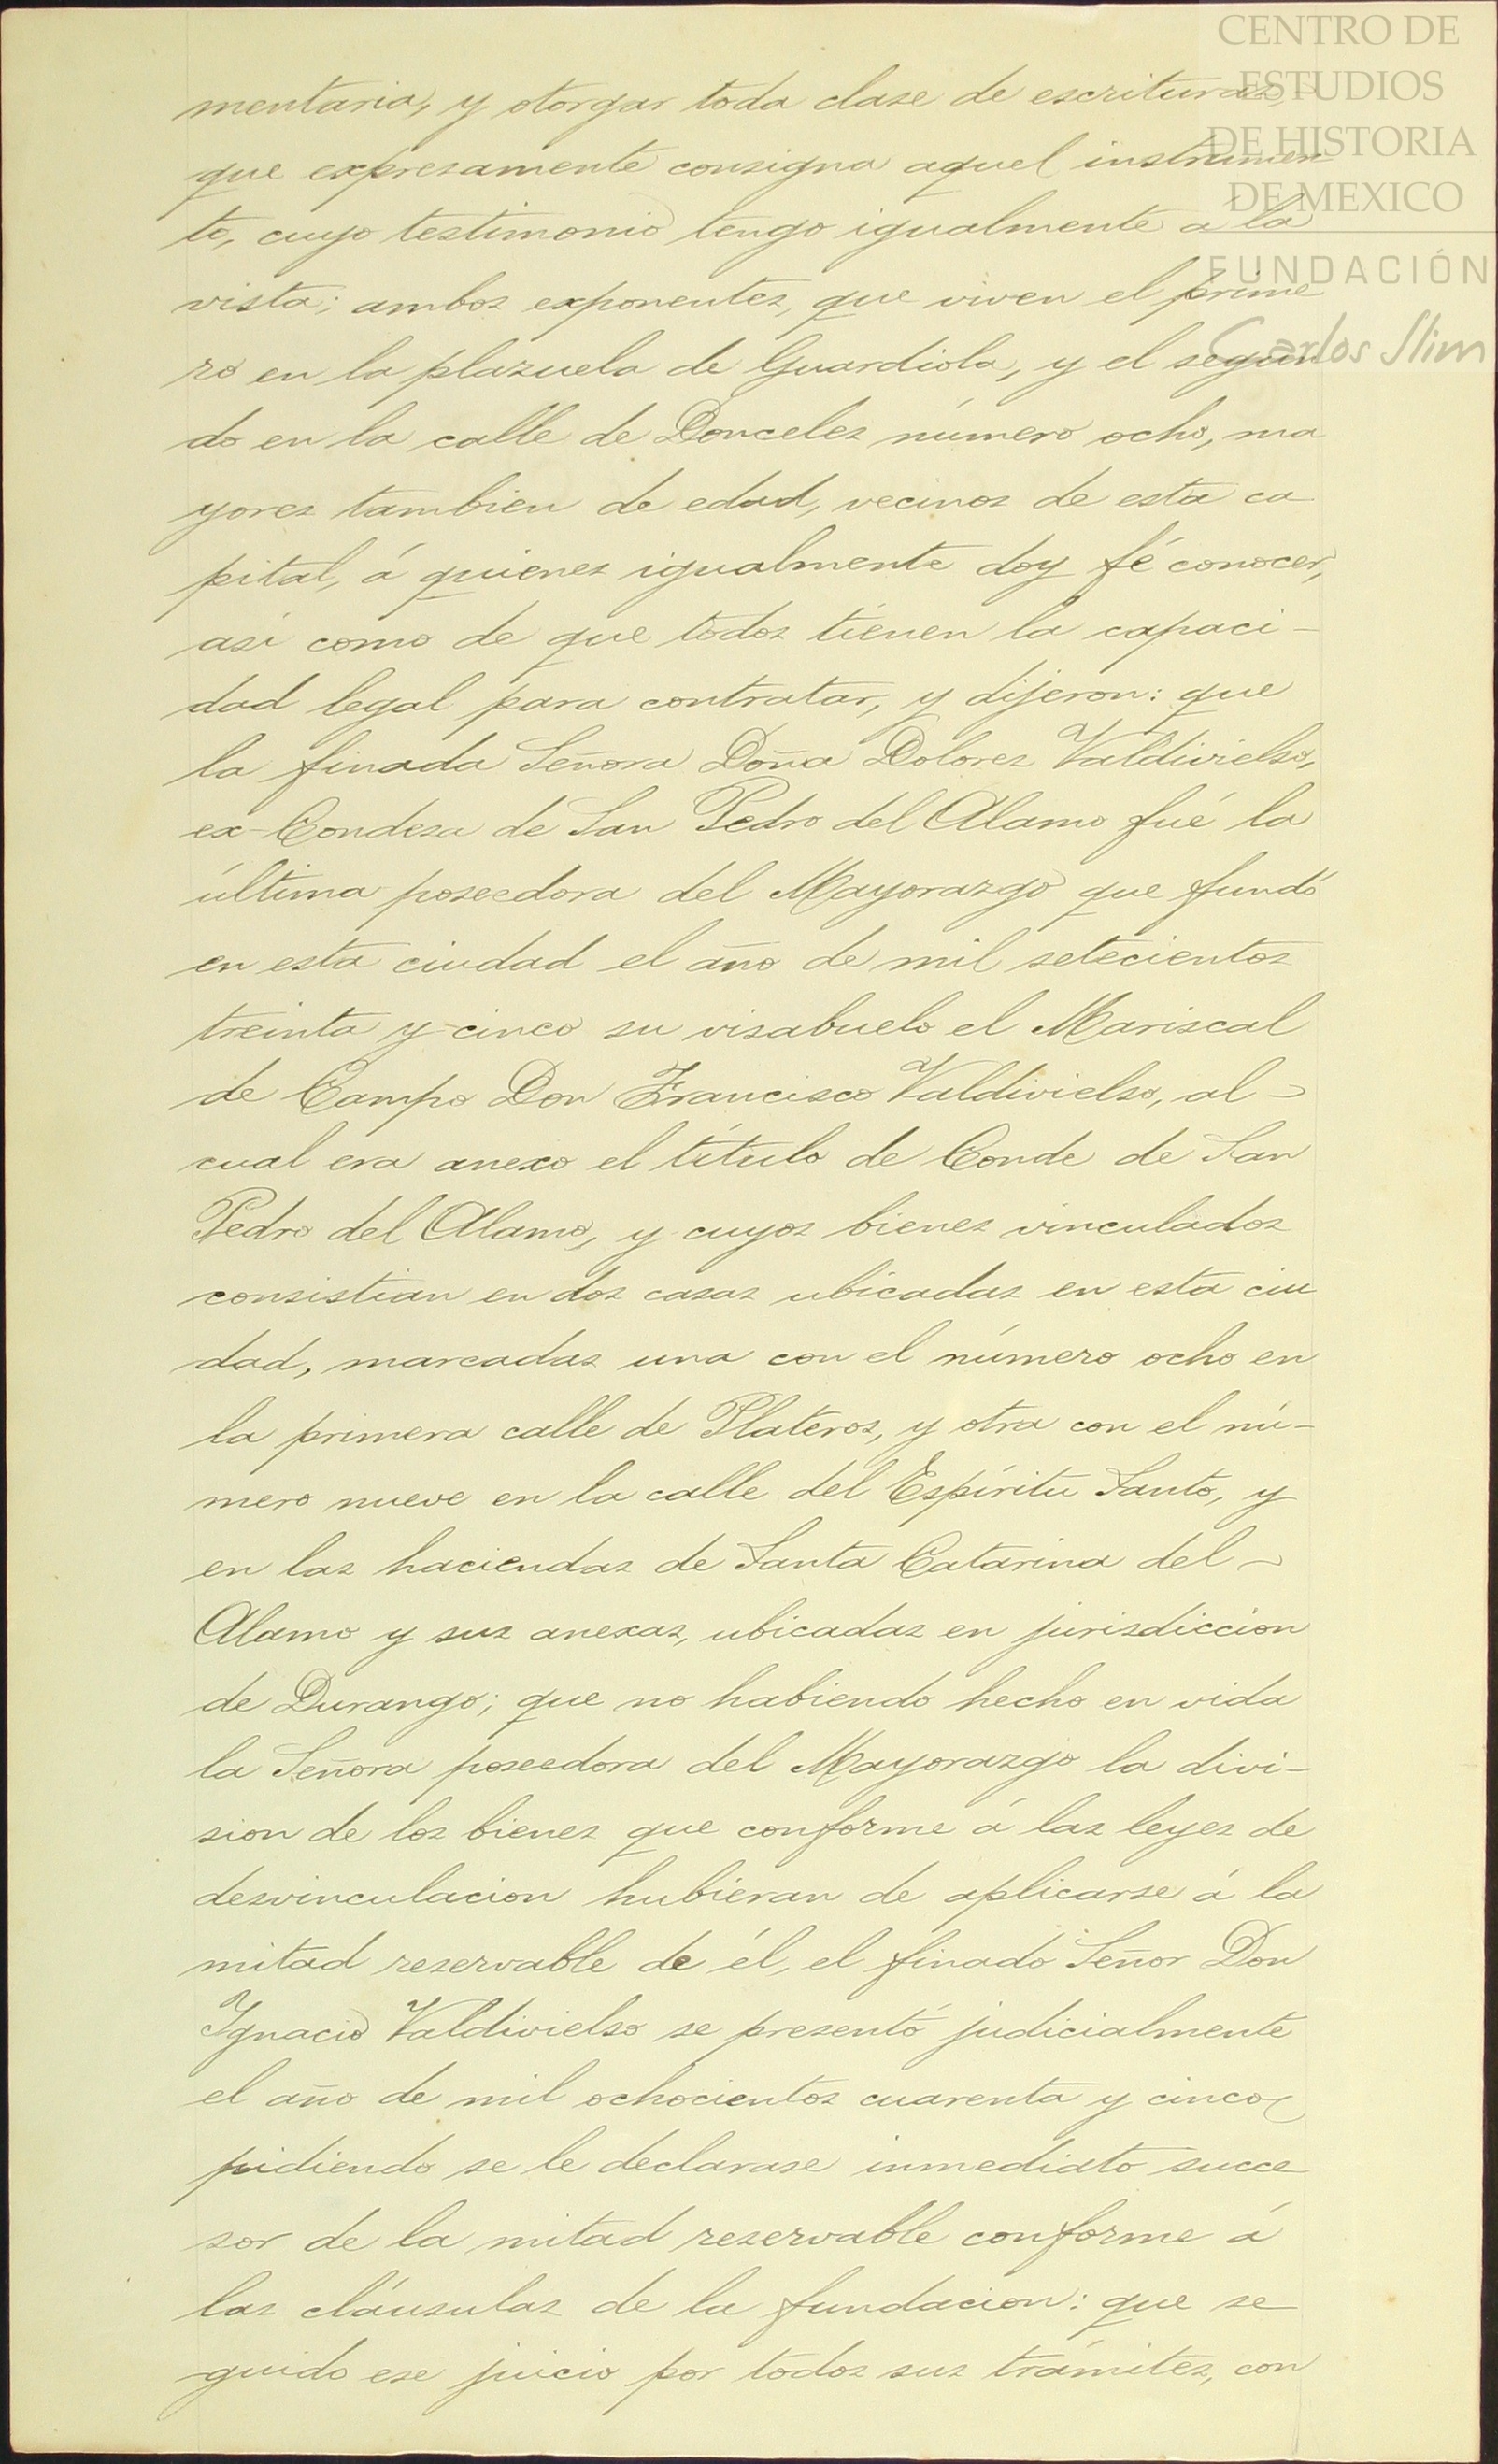 CENTRO DE
ESTUDIOS
DE HISTORIA
DE MEXICO
FUNDACIÓN
Carlos Slim
mentaria, y otorgar toda clase de escrituras,
que expresamente consigna aquel instrumen
to, cuyo testimonio tengo igualmente a la
vista; ambos exponentes, que viven el prime
ro en la plazuela de Guardiola, y el segun
do en la calle de Donceles número ocho, ma
yores tambien de edad, vecinos de esta ca
pital, á quienes igualmente doy fé conocer,
asi como de que todos tienen la capaci-
dad legal para contratar, y dijeron: que
la finada Señora Doña Dolores Valdivielso,
ex-Condesa de San Pedro del Alamo fué la
última poseedora del Mayorazgo que fundó
en esta ciudad el año de mil setecientos
treinta y cinco su visabuelo el Mariscal
de Campo Don Francisco Valdivielso, al-
cual era anexo el título de Conde de San
Pedro del Alamo, y cuyos bienes vinculados
consistian en dos casas ubicadas en esta ciu
dad, marcadas una con el número ocho en
la primera calle de Plateros, y otra con el nú-
mero nueve en la calle del Espíritu Santo, y
en las haciendas de Santa Catarina del-
Alamo y sus anexas, ubicadas en jurisdiccion
de Durango; que no habiendo hecho en vida
la Señora poseedora del Mayorazgo la divi-
sion de los bienes que conforme á las leyes de
desvinculacion hubieran de aplicarse á la
mitad reservable de él, el finado Señor Don
Ignacio Valdivielso se presentó judicialmente
el año de mil ochocientos cuarenta y cinco
pidiendo se le declarase inmediato succe
sor de la mitad reservable conforme á
las cláusulas de la fundacion: que se
guido ese juicio por todos sus trámites, con